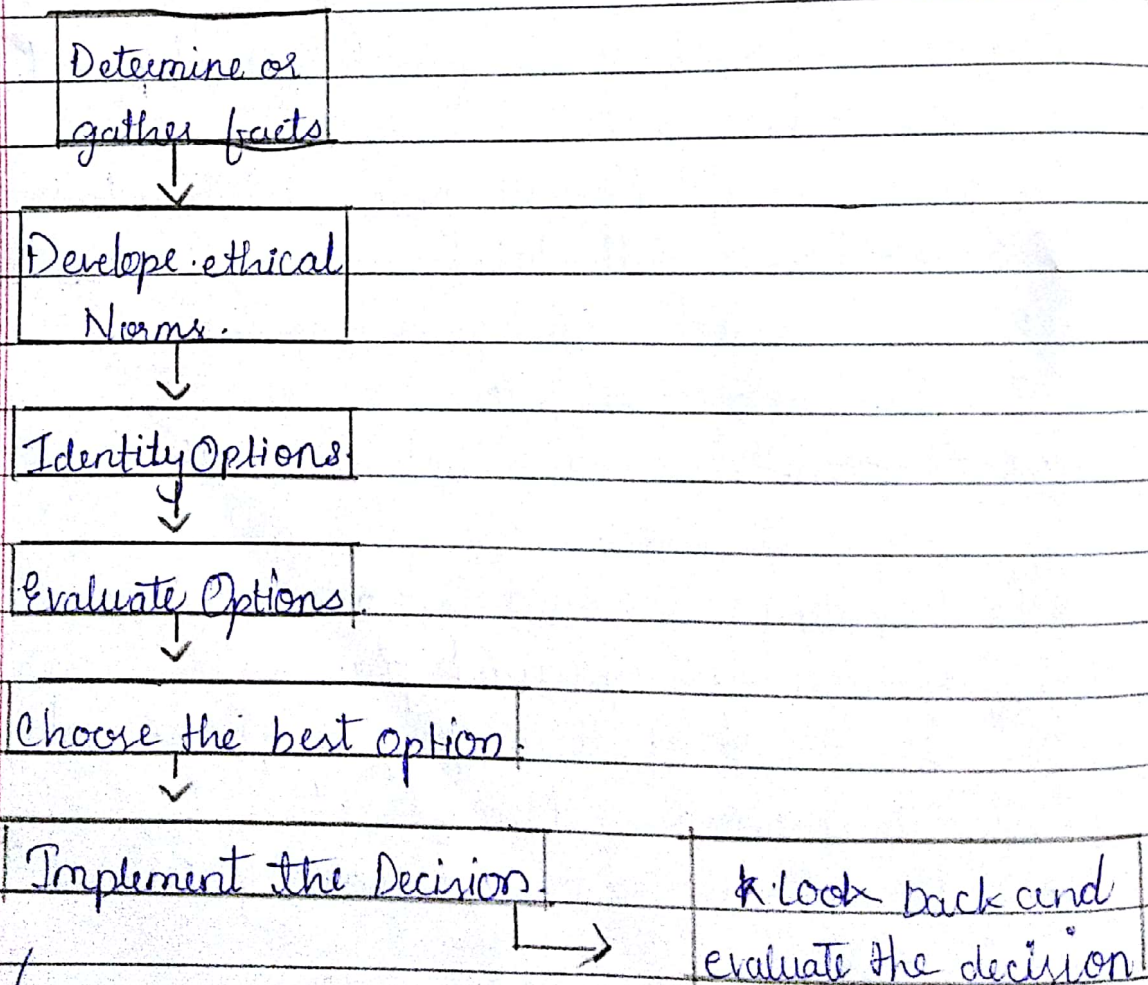 Determine or
gather facts
Develope ethical
Norms.
Identity Options.
Evaluate Options.
Choose the best option.
Implement the Decision.
look back and
evaluate the decision